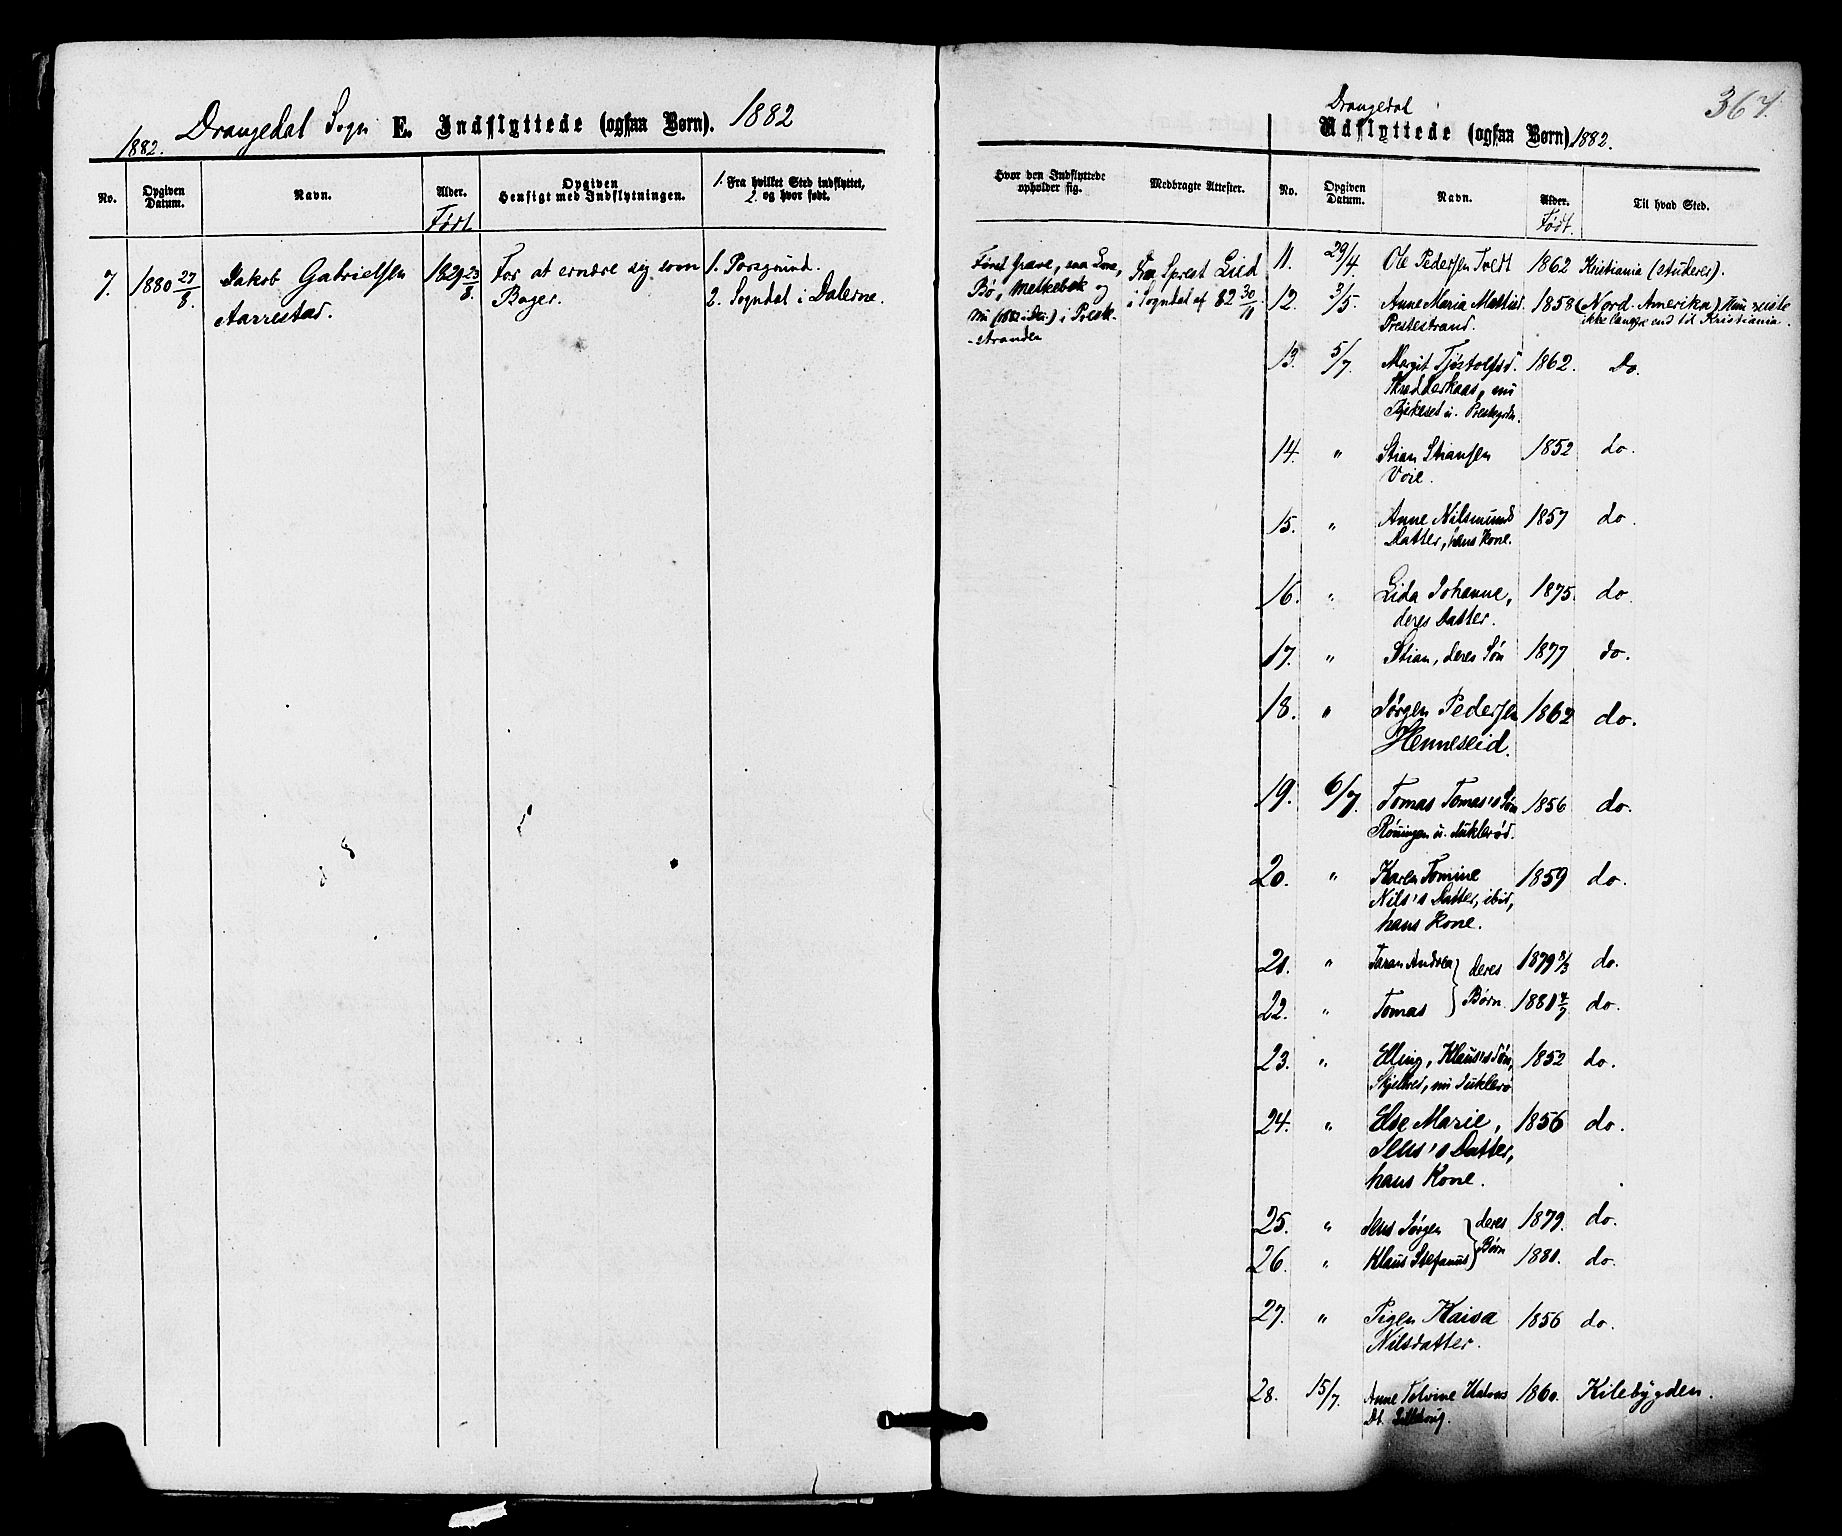 Drangedal Sogn E. Indflyttede (ogsaa Børn). 1882
1882.
No.
Opgiven Datum.
Navn.
Alder.
Født
Opgiven
Hensigt med Indflytningen.
1. Fra hvilket Sted indflyttet,
2. og hvor født.
7. 1880 27/8. Jakob Gabrielsen 1829 23/8. For at ernære sig som 1. Porsgrund.
Aarrestad. Bager. 2. Sogndal i Dalerne.
Drangedal
367.
Udflyttede (ogsaa Børn) 1882.
Hvor den Indflyttede
opholder sig.
Medbragte Attester.
No.
Opgiven Datum.
Navn.
Alder.
Født.
Til hvad Sted.
Først Grave, saa
Bø, Melkebæk og
nu i Preste-
stranden
Fra Sprest Lied
i Sogndal af 82 30/11.
11. 29/4. Ole Pedersen Tvedt 1862 Kristiania (studerer).
12. 3/5. Anne Maria 1858 (Nord-Amerika) Hun reiste
Prestestrand. ikke længre end til Kristiania.
13. 5/7. Margit Tjøstolfsd. 1862. Do.
Skredderkaas, nu
14. " Stian Stiansen 1852 do.
Voie.
15. " Anne Nilsmunds 1857 do.
Datter, hans Kone.
16. " Lida Johanne, 1875. do.
deres Datter.
17. " Stian, deres Søn 1877 do.
18. " Jørgen Pedersen 1862 do.
Henneseid.
19. 6/7. Tomas Tomas's Søn 1856 do.
Røningen u.
20. " Karen Tomine 1859 do.
Nils's Datter, ibid,
hans Kone.
21. " Taran Andrea } deres 1879 8/3 do.
22. " Tomas } Børn. 1881 4/7 do.
23. " Elling, Klaus's Søn, 1852 do.
24. " Else Marie, 1856 do.
Jens's Datter,
hans Kone.
25. " Jens Jørgen } deres 1879. do.
26. " Klaus Stefanus } Børn 1881. do.
27. " Pigen Kaisa 1856 do.
Nilsdatter.
28. 15/7. Anne Tolvine Halvors 1860. Kilebygden.
Dt.